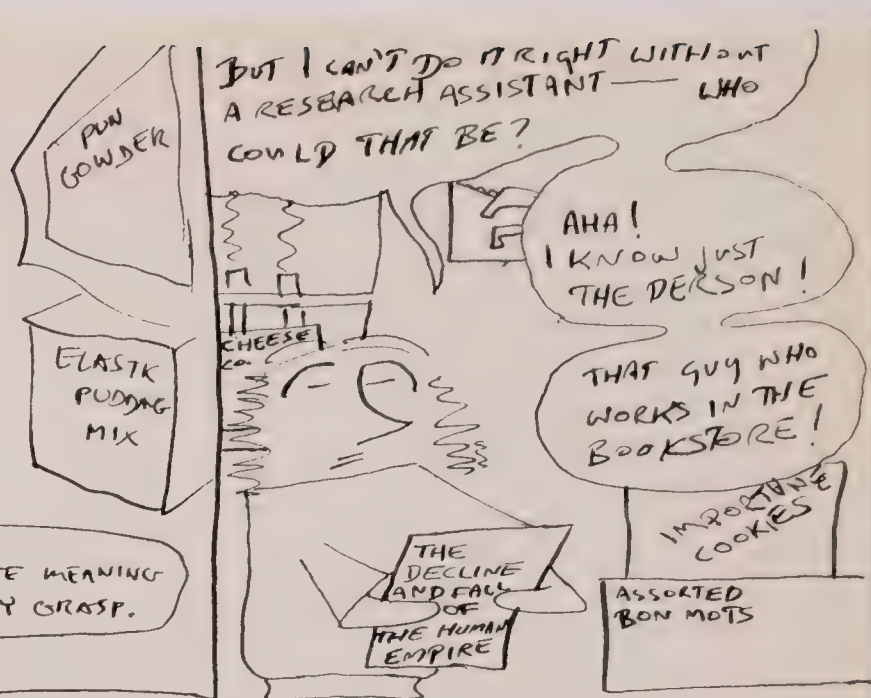 PUN
GOWDER
ELASTK
PUDDNG
MIX
E MEANING
Y GRASP.
BUT I CAN'T DO IT RIGHT WITHOUT
A RESEARCH ASSISTANT — WHO
COULD THAT BE?
AHA!
I KNOW JUST
THE PERSON!
THAT GUY WHO
WORKS IN THE
BOOKSTORE!
CHEESE
CO.
THE
DECLINE
AND FALL
OF
THE HUMAN
EMPIRE
IMPORTUNE
COOKIES
ASSORTED
BON MOTS